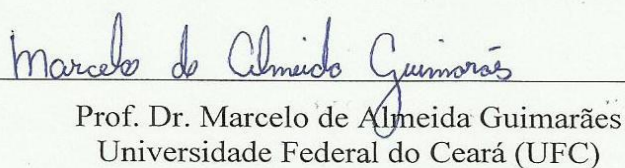 Marcelo de Almeida Guimarães
Prof. Dr. Marcelo de Almeida Guimarães
Universidade Federal do Ceará (UFC)